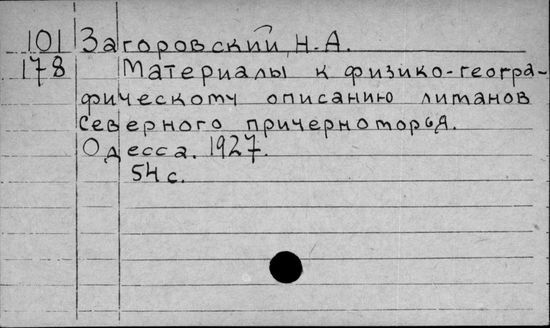 101 Загоровский, Н.А.
178 Материалы к физико-геогра-
фическому описанию лиманов
Северного причерноморья.
Одесса. 1927.
54 с.